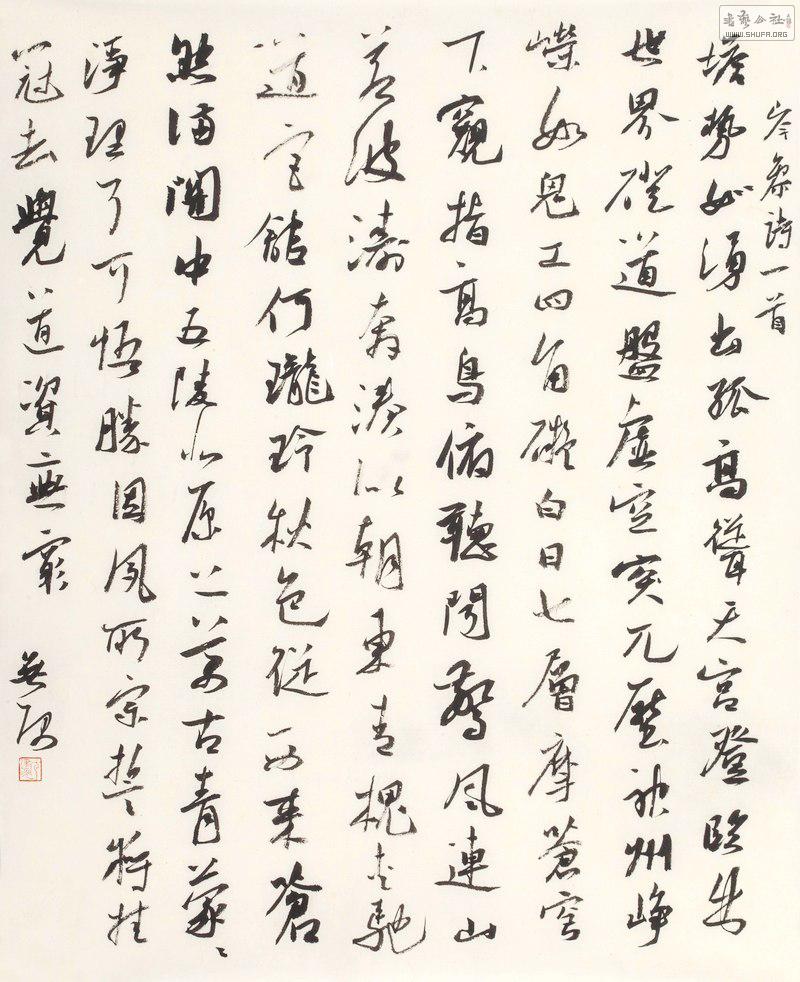 岑參詩一首
塔勢如湧出孤高聳天宮登臨出
世界磴道盤虛空突兀壓神州崢
嶸如鬼工四角礙白日七層摩蒼穹
下窺指高鳥俯聽聞驚風連山
若波濤奔湊似朝東青槐夾馳
道宮館何瓏玲秋色從西來蒼
然滿關中五陵北原上萬古青蒙〻
淨理了可悟勝因夙所宗誓將挂
冠去覺道資無窮
书艺公社
WWW.SHUFA.ORG